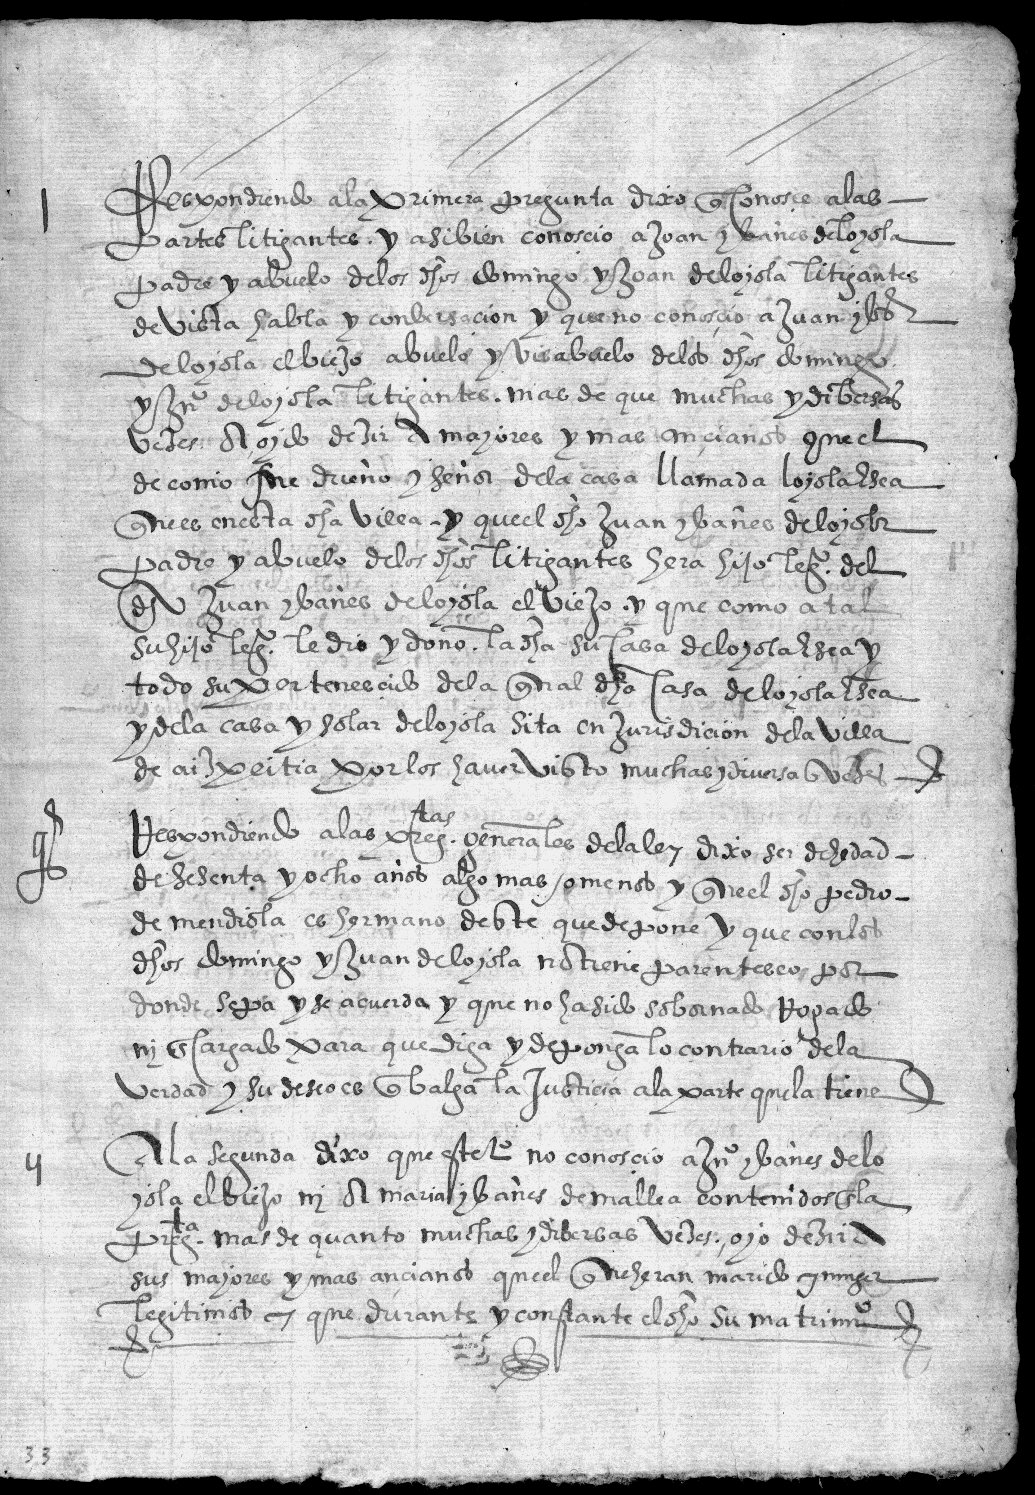 1 Respondiendo ala primera pregunta dixo q̄ conosce alas
partes litigantes. y asibien conoscio a Joan ybañes deloyola
padre y abuelo delos dhōs domingo y Joan deloyola litigantes
de vista habla y conbersacion y que no conoscio a Juan ybs
deloyola el biejo abuelo y visabuelo delos dhōs domingo
y Juº deloyola litigantes. mas de que muchas y dibersas
vezes. A oydo dezir A mayores y mas ancianos que el
de como fue dueño y señor dela casa llamada loyola
que es en esta dhā villa. y que el dhō Juan ybañes deloyola
padre y abuelo delos dhōs litigantes hera hijo legº. del
dhō Juan ybañes deloyola el viejo. y que como a tal
su hijo legº. le dio y dono. la dhā su casa deloyola y
todo su pertenescido dela qual dhā casa deloyola
y dela casa y solar deloyola sita en Jurisdicion dela villa
de aizpeitia por los haver visto muchas y diversas vezes
gs Respondiendo alas pregtas. generales dela ley dixo ser de hedad
de sesenta y ocho años algo mas / o menos y que el dhō pedro
de mendiola es hermano deste que depone y que con los
dhōs domingo y Juan deloyola no tiene parentesco por
donde sepa y se acuerda y que no ha sido sobornado Rogado
ny Encargado para que diga y deponga lo contrario dela
verdad y su deseo es q̄ balga la Justicia ala parte que la tiene
ij Ala segunda dixo que este tº no conoscio a Juº ybañes delo
yola el biejo ny A maria ybañes de mallea contenidos en la
pregta. mas de quanto muchas y dibersas vezes. oyo dezir A
sus mayores y mas ancianos que el que heran marido y muger
legitimos y que durante y constante el dhō su matrimº
33